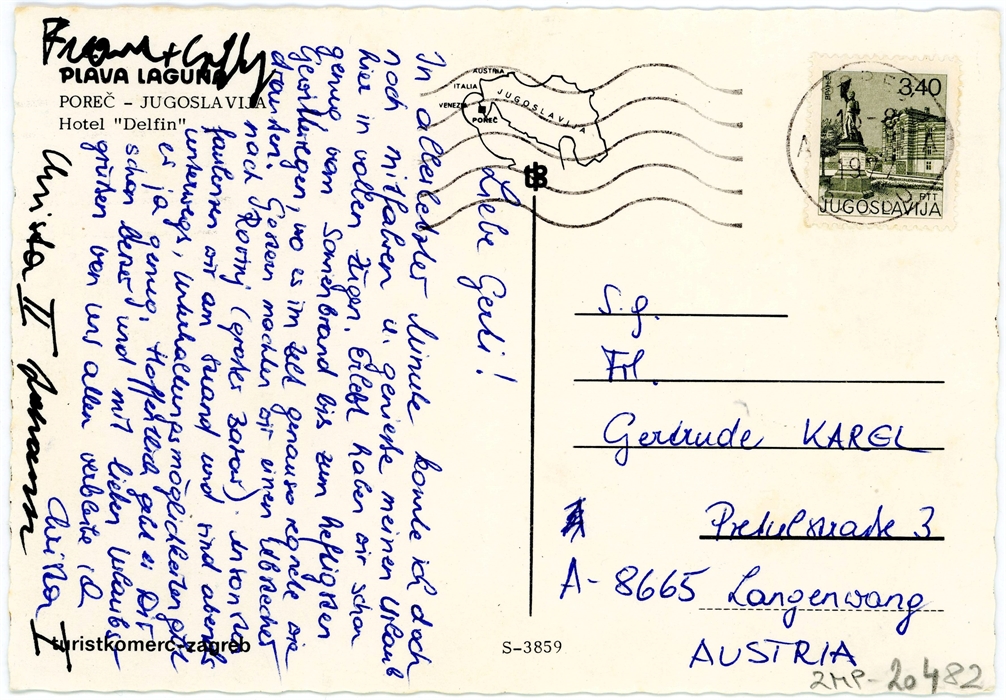 Franz + Gitty
PLAVA LAGUNA
POREČ – JUGOSLAVIJA
Hotel "Delfin"
Liebe Gerti!
In allerletzter Minute konnte ich doch
noch mitfahren u. genieße meinen Urlaub
hier in vollen Zügen. Erlebt haben wir schon
genug, vom Sonnenbrand bis zum heftigsten
Gewitterregen, wo es im Zelt genauso regnete wie
draußen. Gestern machten wir einen Abstecher
nach Rovinj (großer Bazar). Ansonsten
faulenzen wir am Strand und sind abends
unterwegs, Unterhaltungsmöglichkeiten gibt
es ja genug. Hoffentlich geht es Dir
schon besser und mit lieben Urlaubs-
grüßen von uns allen verbleibe ich
Christa I
Christa II Johann
turistkomerc-zagreb
AUSTRIA
ITALIA
VENEZIA
JUGOSLAVIJA
POREČ
S-3859
3,40
PTT
JUGOSLAVIJA
S.g.
Frl.
Gertrude KAREL
Pretulstraße 3
A-8665 Langenwang
AUSTRIA
ZMP-20482